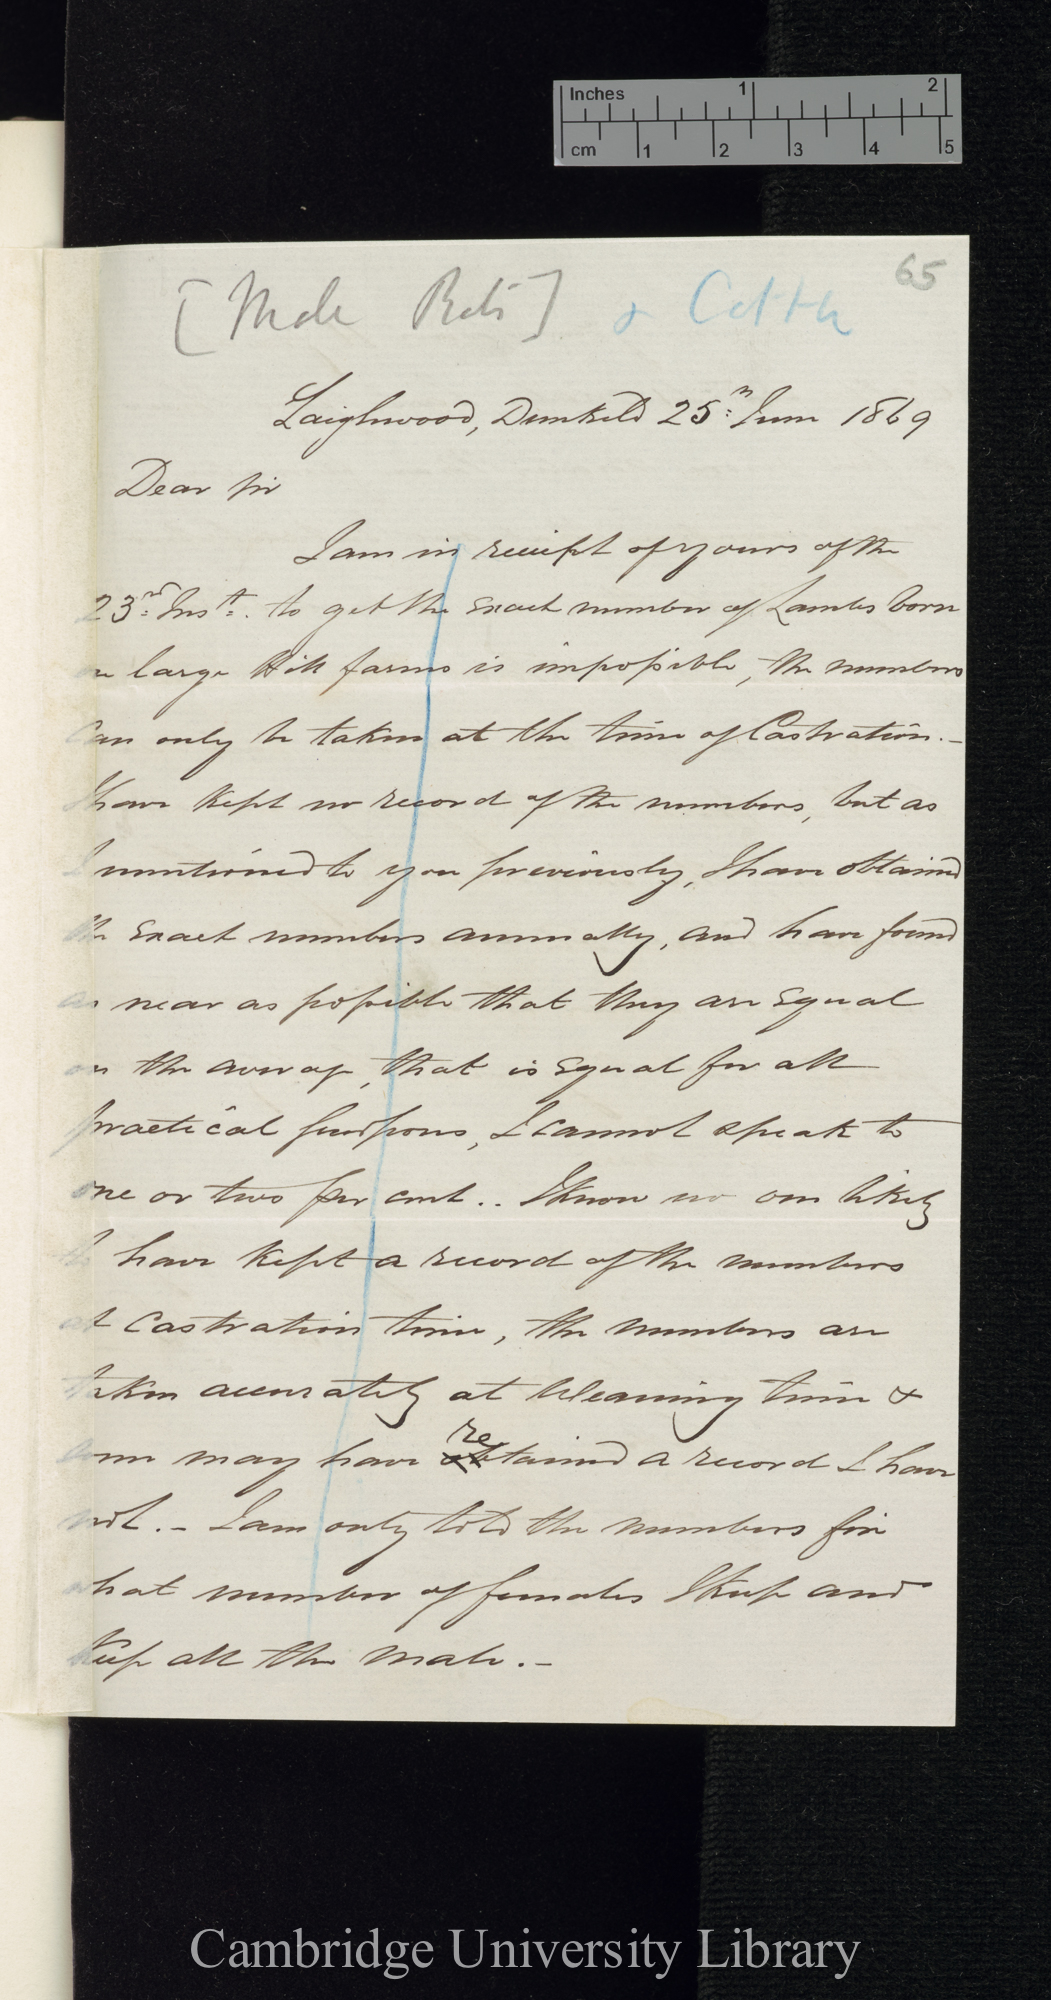 Inches 1 2
cm 1 2 3 4 5
65
[Male Rats] & Cattle
Laighwood, Dunkeld 25th June 1869
Dear Sir
I am in receipt of yours of the
23rd Inst. to get the exact number of Lambs born
on large Hill farms is impossible, the numbers
Can only be taken at the time of Castration.–
I have kept no record of the numbers, but as
I mentioned to you previously, I have obtained
the exact numbers annually, and have found
as near as possible that they are equal
on the average, that is equal for all
practical purposes, I cannot speak to
one or two per cent.. I know no one likely
to have kept a record of the numbers
at Castration time, the numbers are
taken accurately at Weaning time &
some may have retained a record I have
not.– I am only told the numbers for
what number of females I keep and
Keep all the male.–
Cambridge University Library